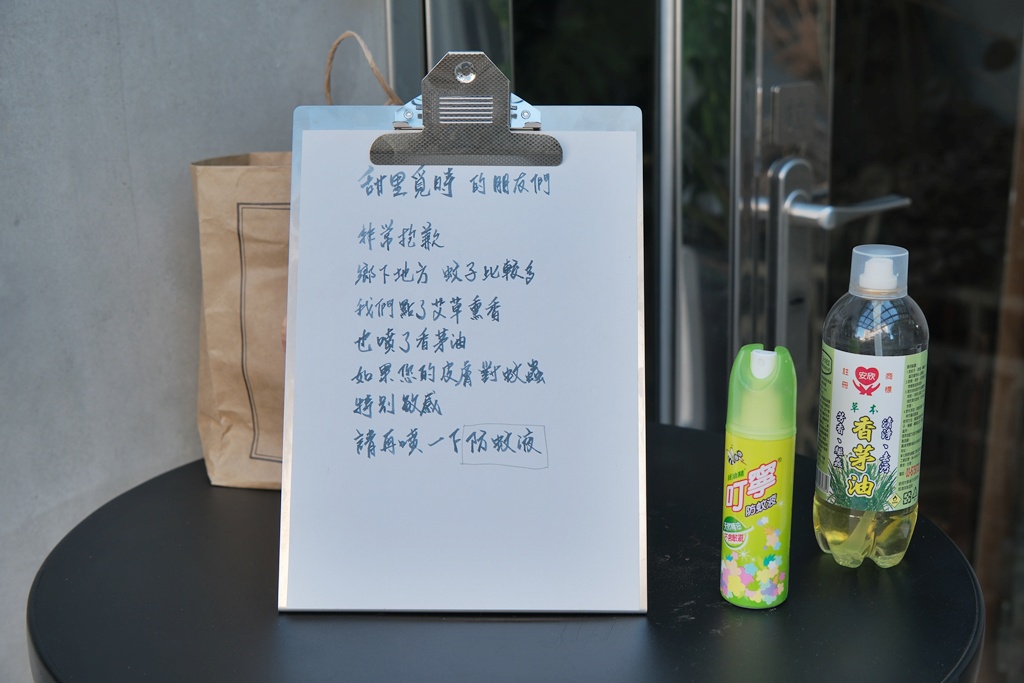 甜里覓時 的朋友們
非常抱歉
鄉下地方 蚊子比較多
我們點了艾草熏香
也噴了香茅油
如果您的皮膚對蚊蟲
特別敏感
請再噴一下防蚊液
叮寧
防蚊液
安欣
註冊
商標
草本
香茅油
清淨、去污